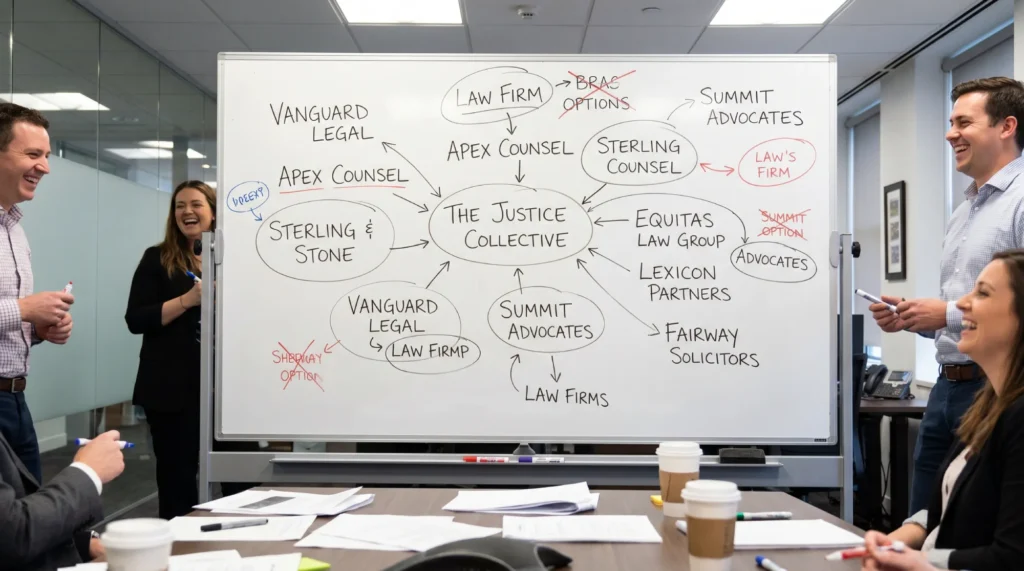 LAW FIRM
BRAS
OPTIONS
VANGUARD
LEGAL
SUMMIT
ADVOCATES
APEX COUNSEL
STERLING
COUNSEL
LAW'S
FIRM
APEX COUNSEL
STERLING &
STONE
THE JUSTICE
COLLECTIVE
EQUITAS
LAW GROUP
SUMMIT
OPTION
ADVOCATES
LEXICON
PARTNERS
VANGUARD
LEGAL
LAW FIRMP
SUMMIT
ADVOCATES
FAIRWAY
SOLICITORS
OPTION
LAW FIRMS